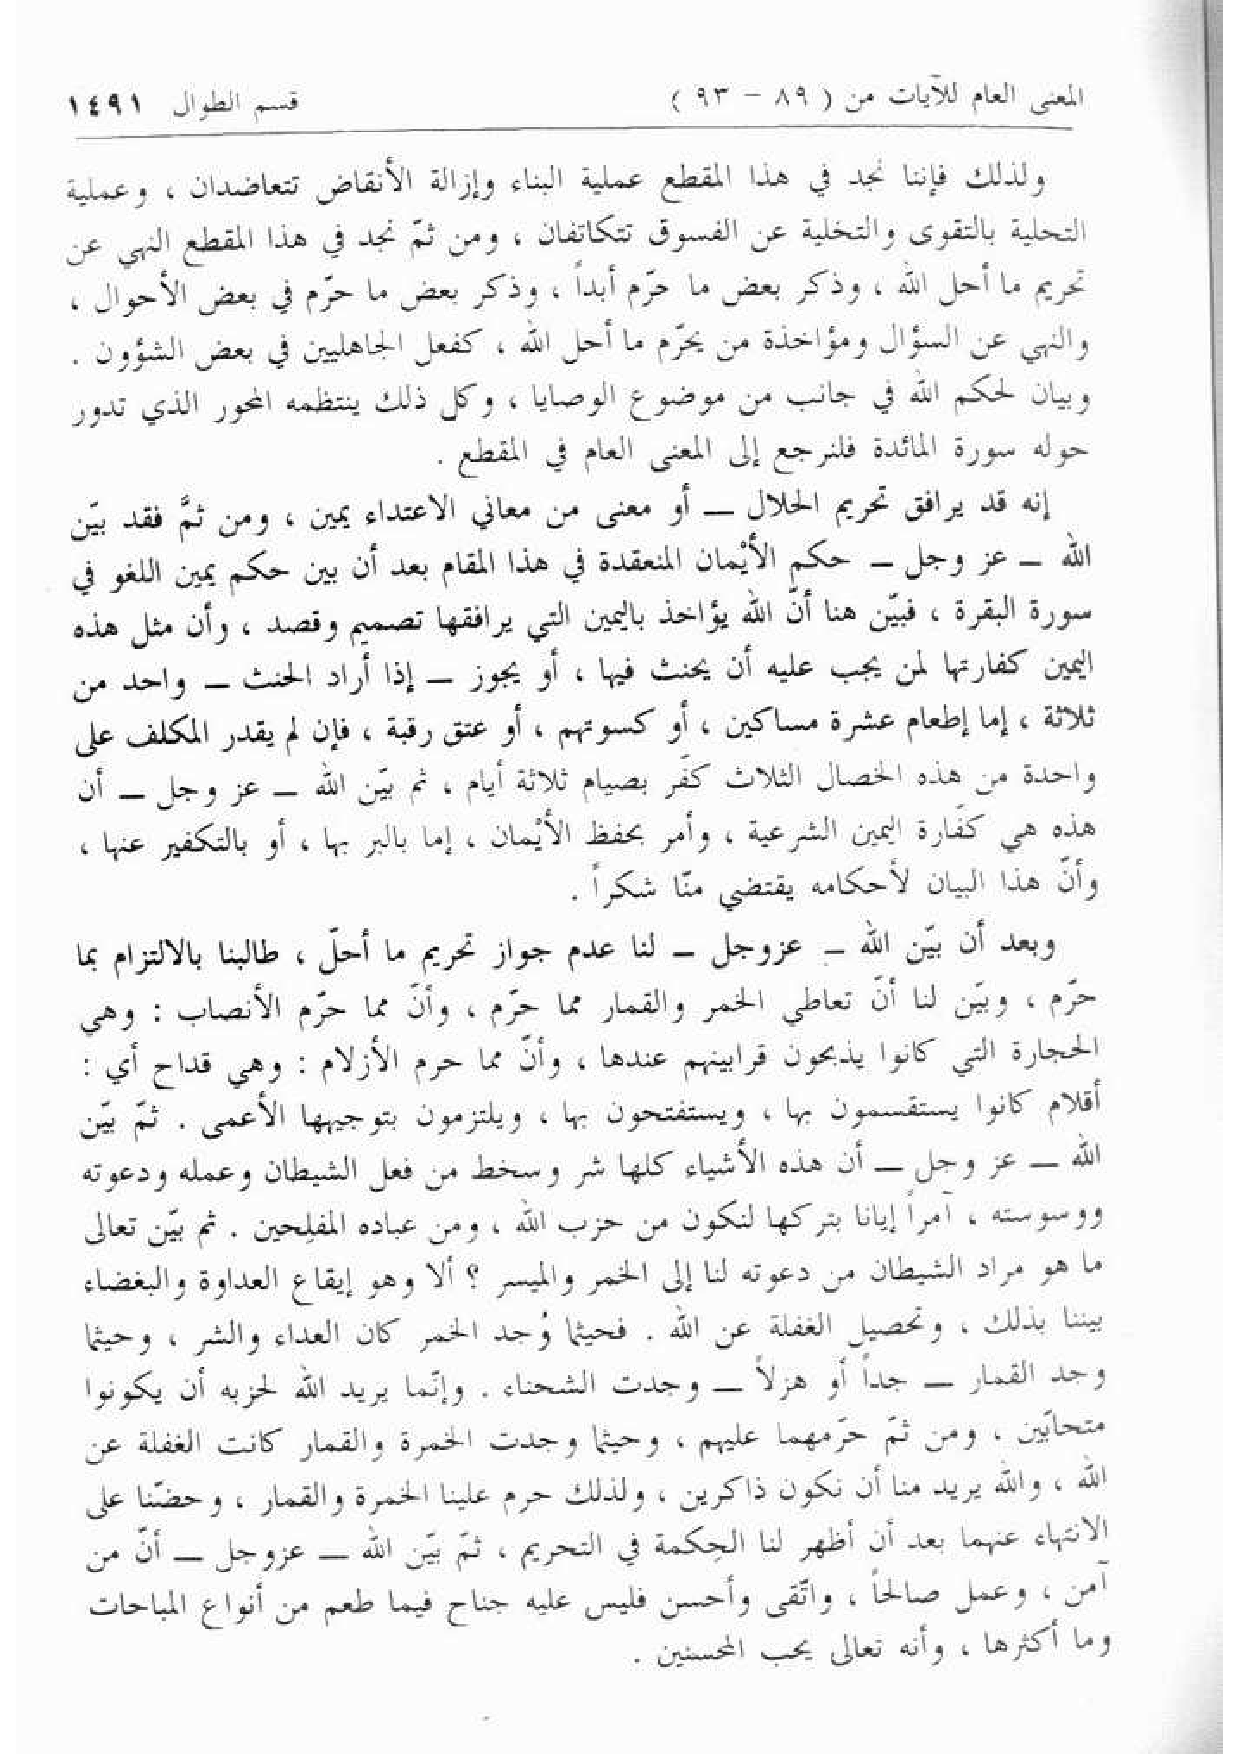 المعنى العام للآيات من ( ٨٩ – ٩٣ ) قسم الطوال ١٤٩١
ولذلك فإننا نجد في هذا المقطع عملية البناء وإزالة الأنقاض تتعاضدان ، وعملية
التحلية بالتقوى والتخلية عن الفسوق تتكاتفان ، ومن ثمّ نجد في هذا المقطع النهي عن
تحريم ما أحل الله ، وذكر بعض ما حرّم أبداً ، وذكر بعض ما حرّم في بعض الأحوال ،
والنهي عن السؤال ومؤاخذة من يحرّم ما أحل الله ، كفعل الجاهليين في بعض الشؤون .
وبيان لحكم الله في جانب من موضوع الوصايا ، وكل ذلك ينتظمه المحور الذي تدور
حوله سورة المائدة فلنرجع إلى المعنى العام في المقطع .
إنه قد يرافق تحريم الحلال – أو معنى من معاني الاعتداء يمين ، ومن ثمَّ فقد بيّن
الله – عز وجل – حكم الأيْمان المنعقدة في هذا المقام بعد أن بين حكم يمين اللغو في
سورة البقرة ، فبيّن هنا أنّ الله يؤاخذ باليمين التي يرافقها تصميم وقصد ، وأن مثل هذه
اليمين كفارتها لمن يجب عليه أن يحنث فيها ، أو يجوز – إذا أراد الحنث – واحد من
ثلاثة ، إما إطعام عشرة مساكين ، أو كسوتهم ، أو عتق رقبة ، فإن لم يقدر المكلف على
واحدة من هذه الخصال الثلاث كفَر بصيام ثلاثة أيام ، ثم بيّن الله – عز وجل – أن
هذه هي كفَارة اليمين الشرعية ، وأمر بحفظ الأيْمان ، إما بالبر بها ، أو بالتكفير عنها ،
وأنّ هذا البيان لأحكامه يقتضي منّا شكراً .
وبعد أن بيّن الله – عزوجل – لنا عدم جواز تحريم ما أحلّ ، طالبنا بالالتزام بما
حرّم ، وبيَن لنا أنَ تعاطي الخمر والقمار مما حرّم ، وأنَ مما حرّم الأنصاب : وهي
الحجارة التي كانوا يذبحون قرابينهم عندها ، وأنّ مما حرم الأزلام : وهي قداح أي :
أقلام كانوا يستقسمون بها ، ويستفتحون بها ، ويلتزمون بتوجيهها الأعمى . ثمّ بيّن
الله – عز وجل – أن هذه الأشياء كلها شر وسخط من فعل الشيطان وعمله ودعوته
ووسوسته ، آمراً إيانا بتركها لنكون من حزب الله ، ومن عباده المفلِحين . ثم بيّن تعالى
ما هو مراد الشيطان من دعوته لنا إلى الخمر والميسر ؟ ألا وهو إيقاع العداوة والبغضاء
بيننا بذلك ، وتحصيل الغفلة عن الله . فحيثما وُجد الخمر كان العداء والشر ، وحيثما
وجد القمار – جداً أو هزلاً – وجدت الشحناء . وإنّما يريد الله لحزبه أن يكونوا
متحابّين ، ومن ثمّ حرّمهما عليهم ، وحيثما وجدت الخمرة والقمار كانت الغفلة عن
الله ، والله يريد منا أن نكون ذاكرين ، ولذلك حرم علينا الخمرة والقمار ، وحضّنا على
الانتهاء عنهما بعد أن أظهر لنا الحِكمة في التحريم ، ثمّ بيّن الله – عزوجل – أنّ من
آمن ، وعمل صالحاً ، واتّقى وأحسن فليس عليه جناح فيما طعم من أنواع المباحات
وما أكثرها ، وأنه تعالى يحب المحسنين .